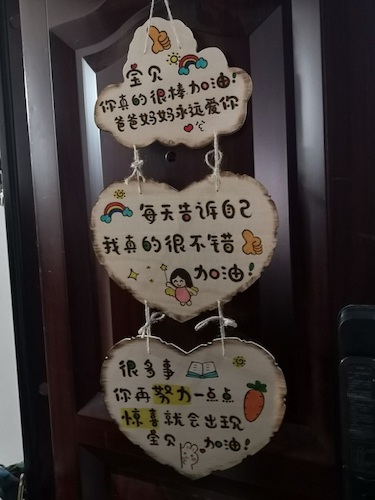 宝贝
你真的很棒加油!
爸爸妈妈永远爱你
每天告诉自己
我真的很不错
加油!
很多事
你再努力一点点
惊喜就会出现
宝贝加油!